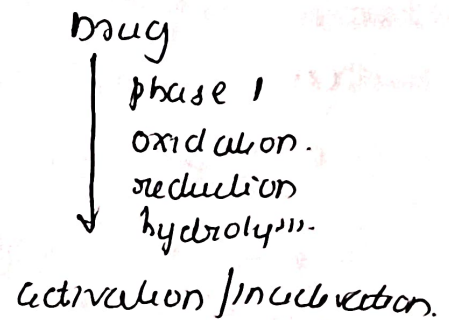 Drug
phase 1
oxidation.
reduction
hydrolysis.
activation/inactivation.